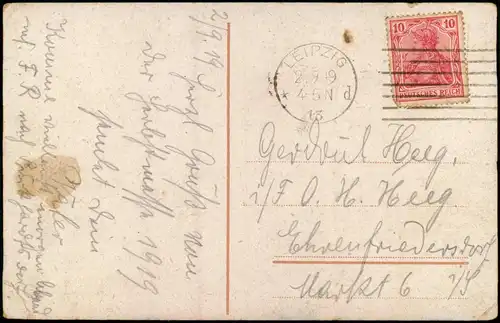 2/9. 19
Herzl. Gruß von
der Herbstmesse 1919
sendet dein
Vater
Komme
nach
LEIPZIG
2.9.19
4-5 N
* 13 d
10 10
DEUTSCHES REICH
Gertrud Heeg,
i/F O. H. Heeg
Ehrenfriedersdorf
Markt 6 i/S